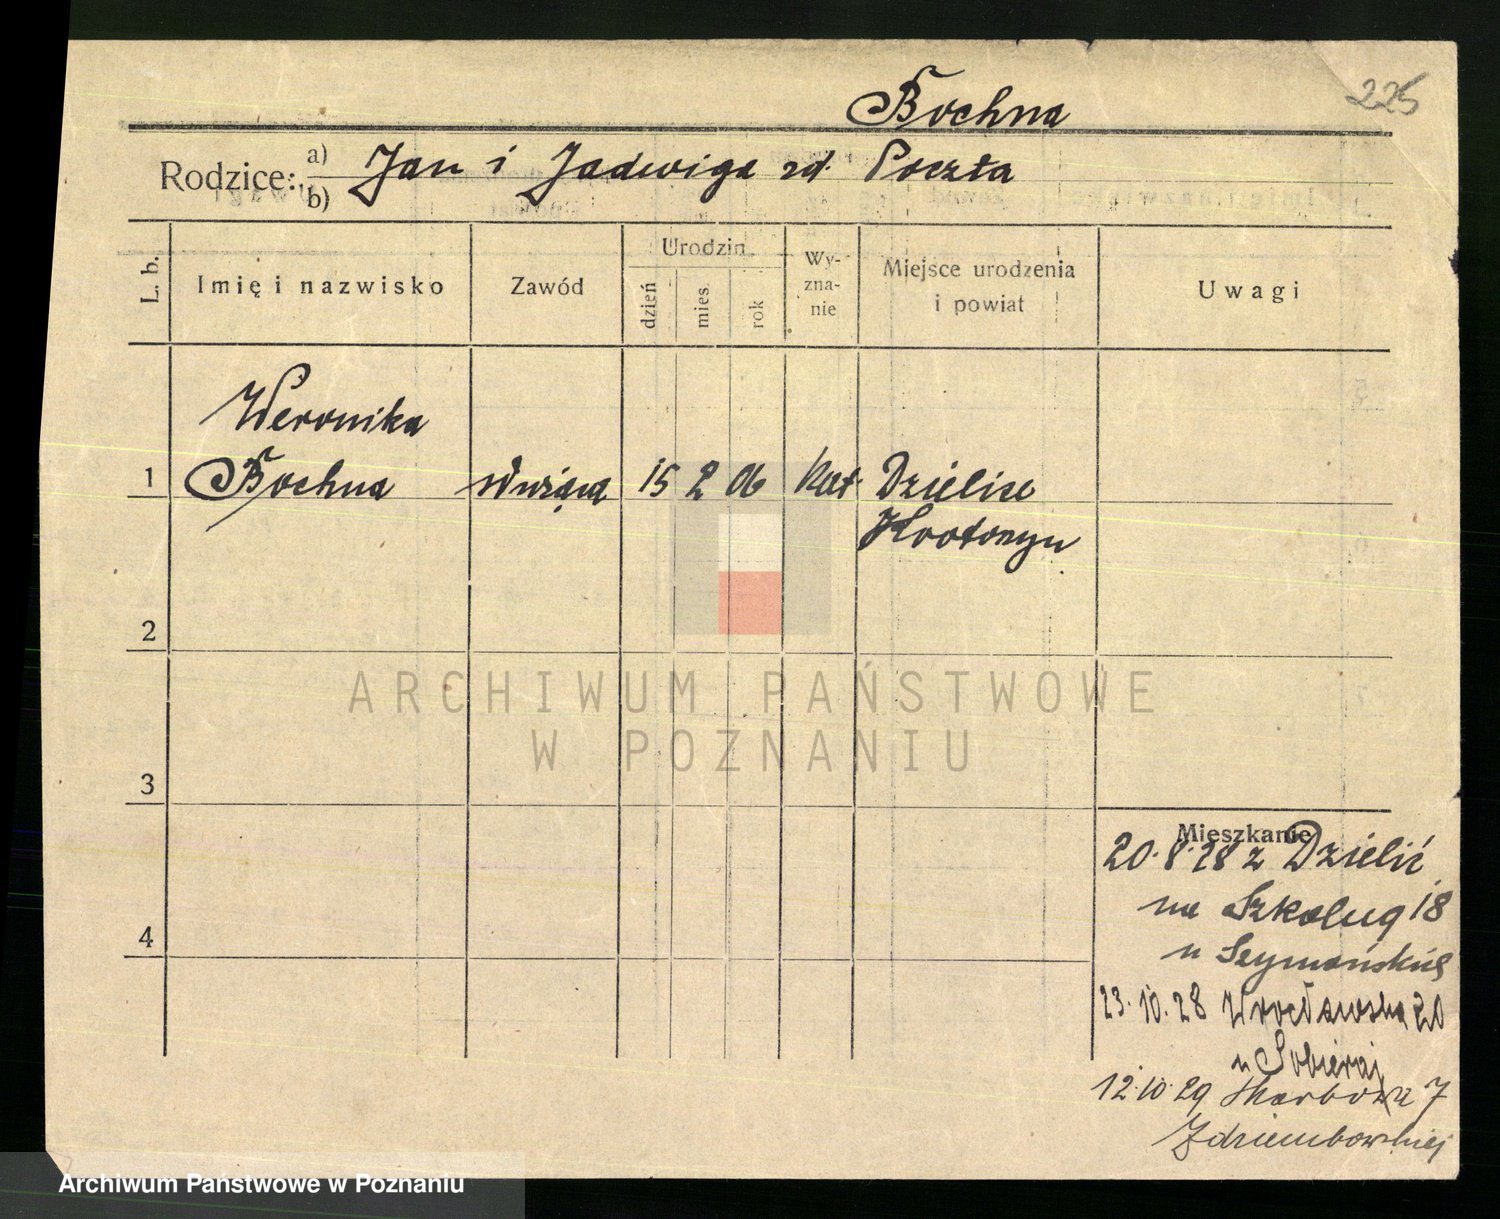 225
Bochna
Rodzice: a) b) Jan i Jadwiga zd. Poczta
L. b. Imię i nazwisko Zawód Urodzin dzień mies. rok Wy-zna-nie Miejsce urodzenia i powiat Uwagi
Weronika
1 Bochna służąca 15 2 06 Kat. Dzielice
Krotoszyn
2
ARCHIWUM PAŃSTWOWE
W POZNANIU
3
Mieszkanie
20.8.28 z Dzielic
na 18
4
u
23.10.28 Wrocławska 20
u Sobieraj
12.10.29 7
Archiwum Państwowe w Poznaniu